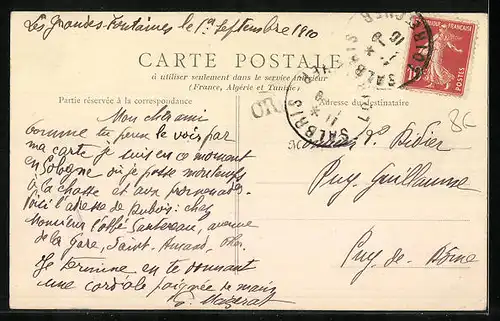 Les Grandes-Fontaines le 1er Septembre 1910
CARTE POSTALE
à utiliser seulement dans le service intérieur
(France, Algérie et Tunisie)
Partie réservée à la correspondance
Mon cher ami
comme tu peux le voir par
ma carte je suis en ce moment
en Sologne où je passe
à la chasse et aux promenades
Voici l'adresse de Dubois: chez
Monsieur l'abbé avenue
de la gare, Saint-Amand, Cher.
Je termine en te donnant
une cordiale poignée de main
Mazerat
OR
SALBRIS
LOIR-ET-CHER
POSTES
10
Adresse du destinataire
8€
Monsieur P. Didier
Puy-Guillaume
Puy-de-Dôme